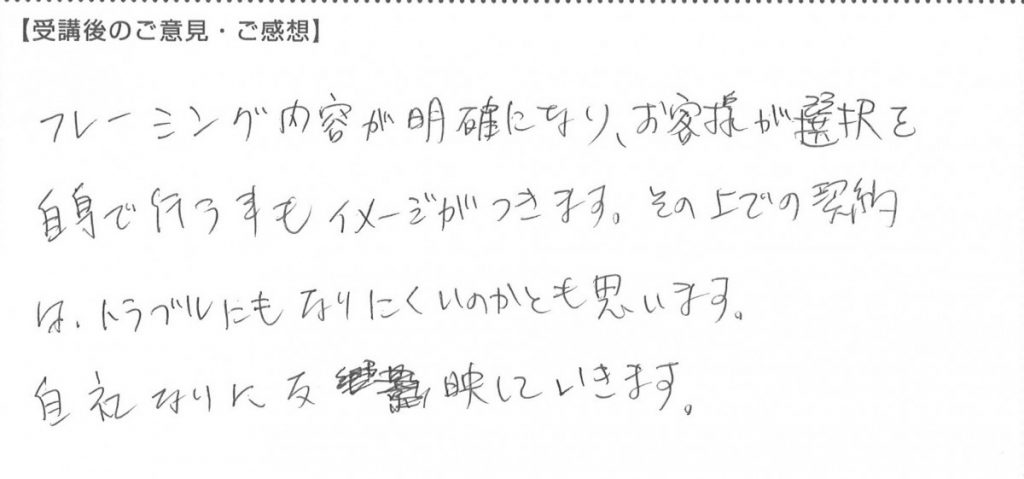 【受講後のご意見・ご感想】
フレーミング内容が明確になり、お客様が選択を
自身で行う事もイメージがつきます。その上での契約
は、トラブルにもなりにくいのかとも思います。
自社なりに反映していきます。